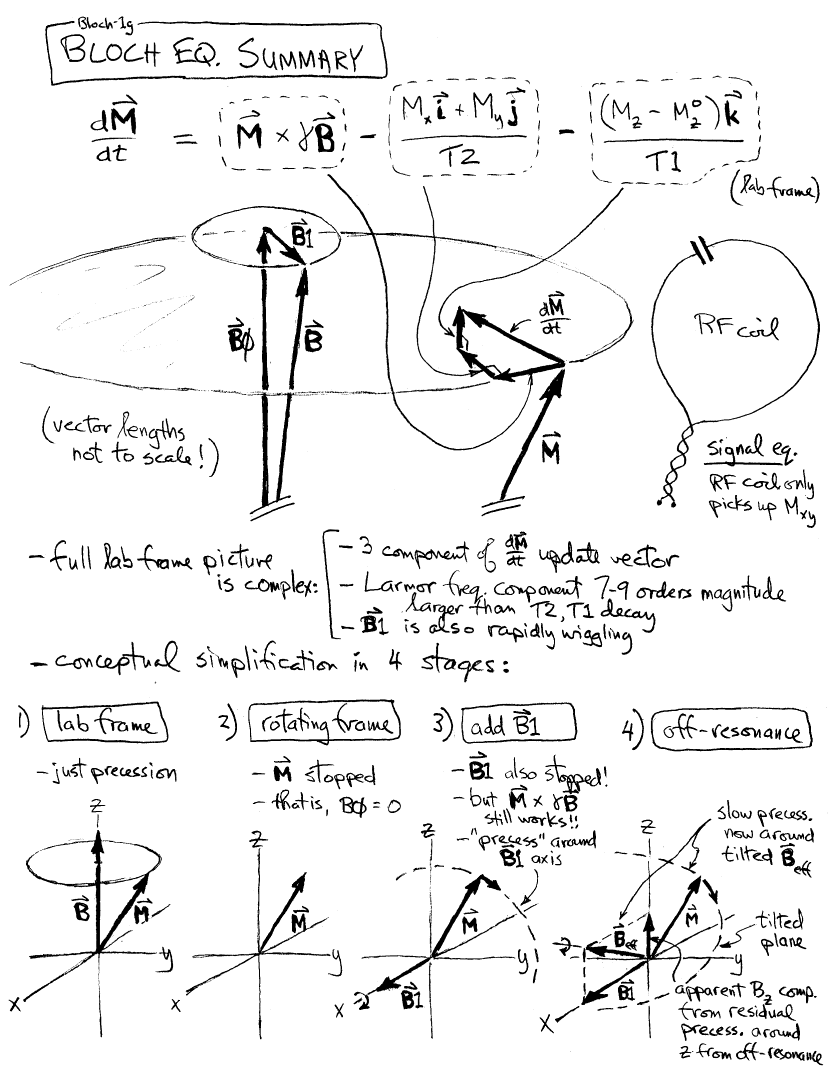 Bloch-1g
BLOCH EQ. SUMMARY
dM⃗/dt = M⃗ × γB⃗ - (Mₓi⃗ + M_y j⃗)/T2 - (M_z - M_z⁰)k⃗/T1
(lab frame)
B⃗1
dM⃗/dt
B⃗ϕ
B⃗
M⃗
RF coil
(vector lengths
not to scale!)
signal eq.
RF coil only
picks up Mxy
- full lab frame picture
is complex:
- 3 component of dM⃗/dt update vector
- Larmor freq. component 7-9 orders magnitude
larger than T2, T1 decay
- B⃗1 is also rapidly wiggling
- conceptual simplification in 4 stages:
1) lab frame
- just precession
z
B⃗
M⃗
y
x
2) rotating frame
- M⃗ stopped
- that is, Bϕ = 0
z
M⃗
y
x
3) add B⃗1
- B⃗1 also stopped!
- but M⃗ × γB⃗
still works!!
- "precess" around
B⃗1 axis
z
M⃗
y
x
B⃗1
4) off-resonance
slow precess.
now around
tilted B⃗eff
z
M⃗
B⃗eff
tilted
plane
y
B⃗1
x
apparent Bz comp.
from residual
precess. around
z from off-resonance